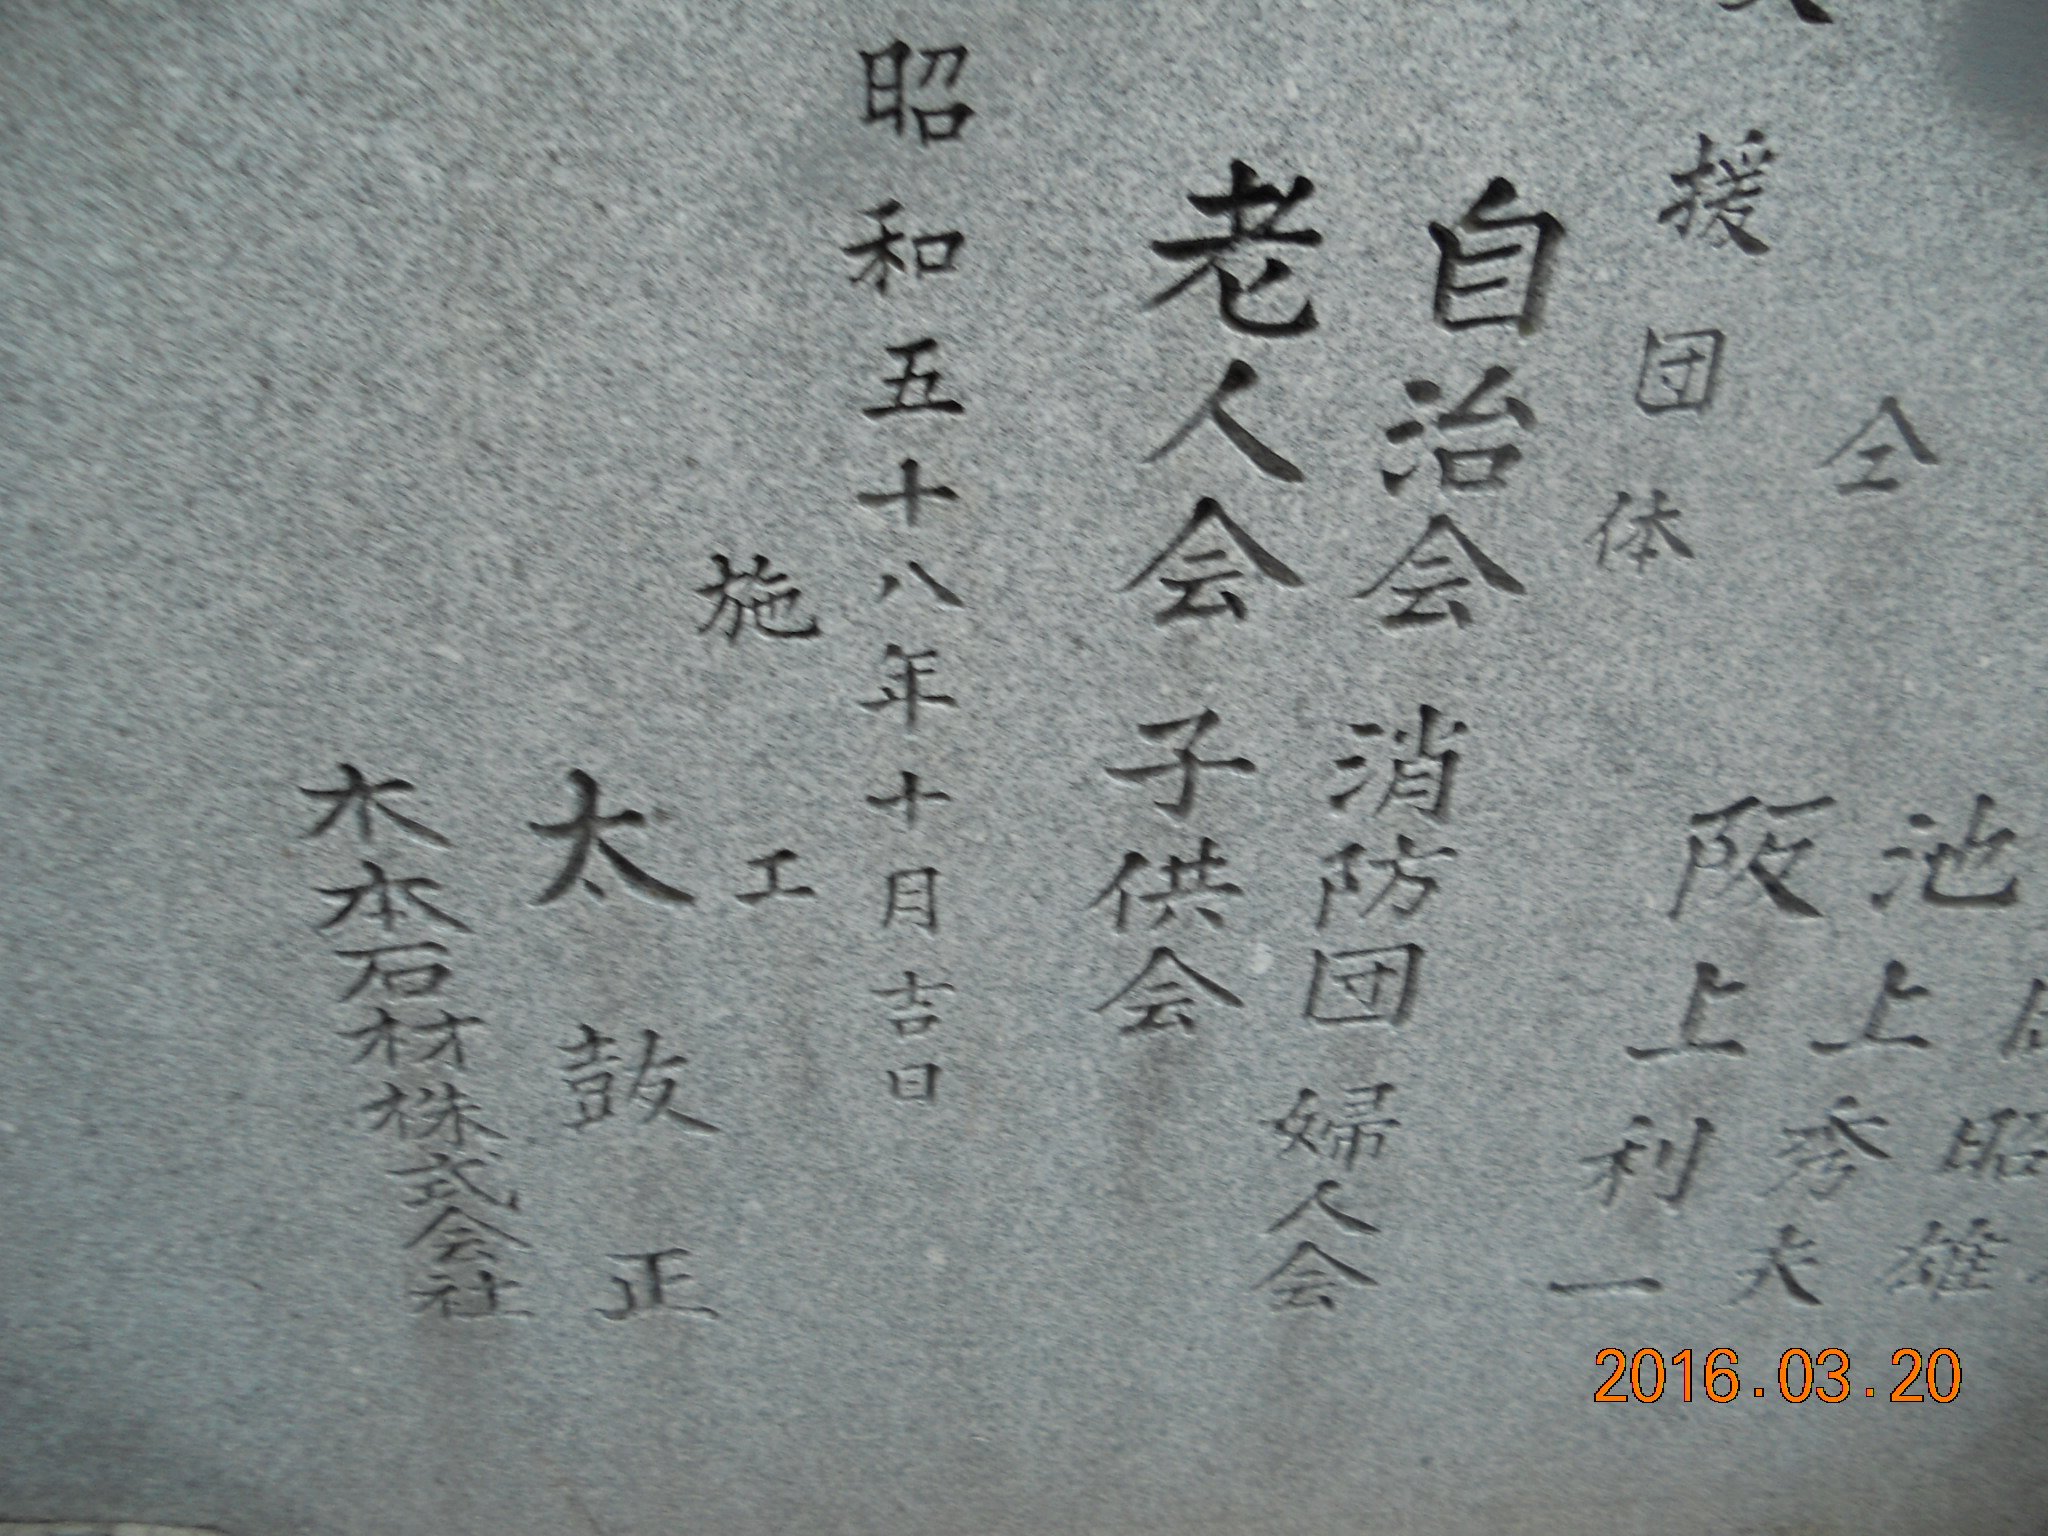 昭雄
仝 池上秀夫
阪上利一
援団体
自治会 消防団 婦人会
老人会 子供会
昭和五十八年十月吉日
施工
太鼓正
木本石材株式会社
2016.03.20